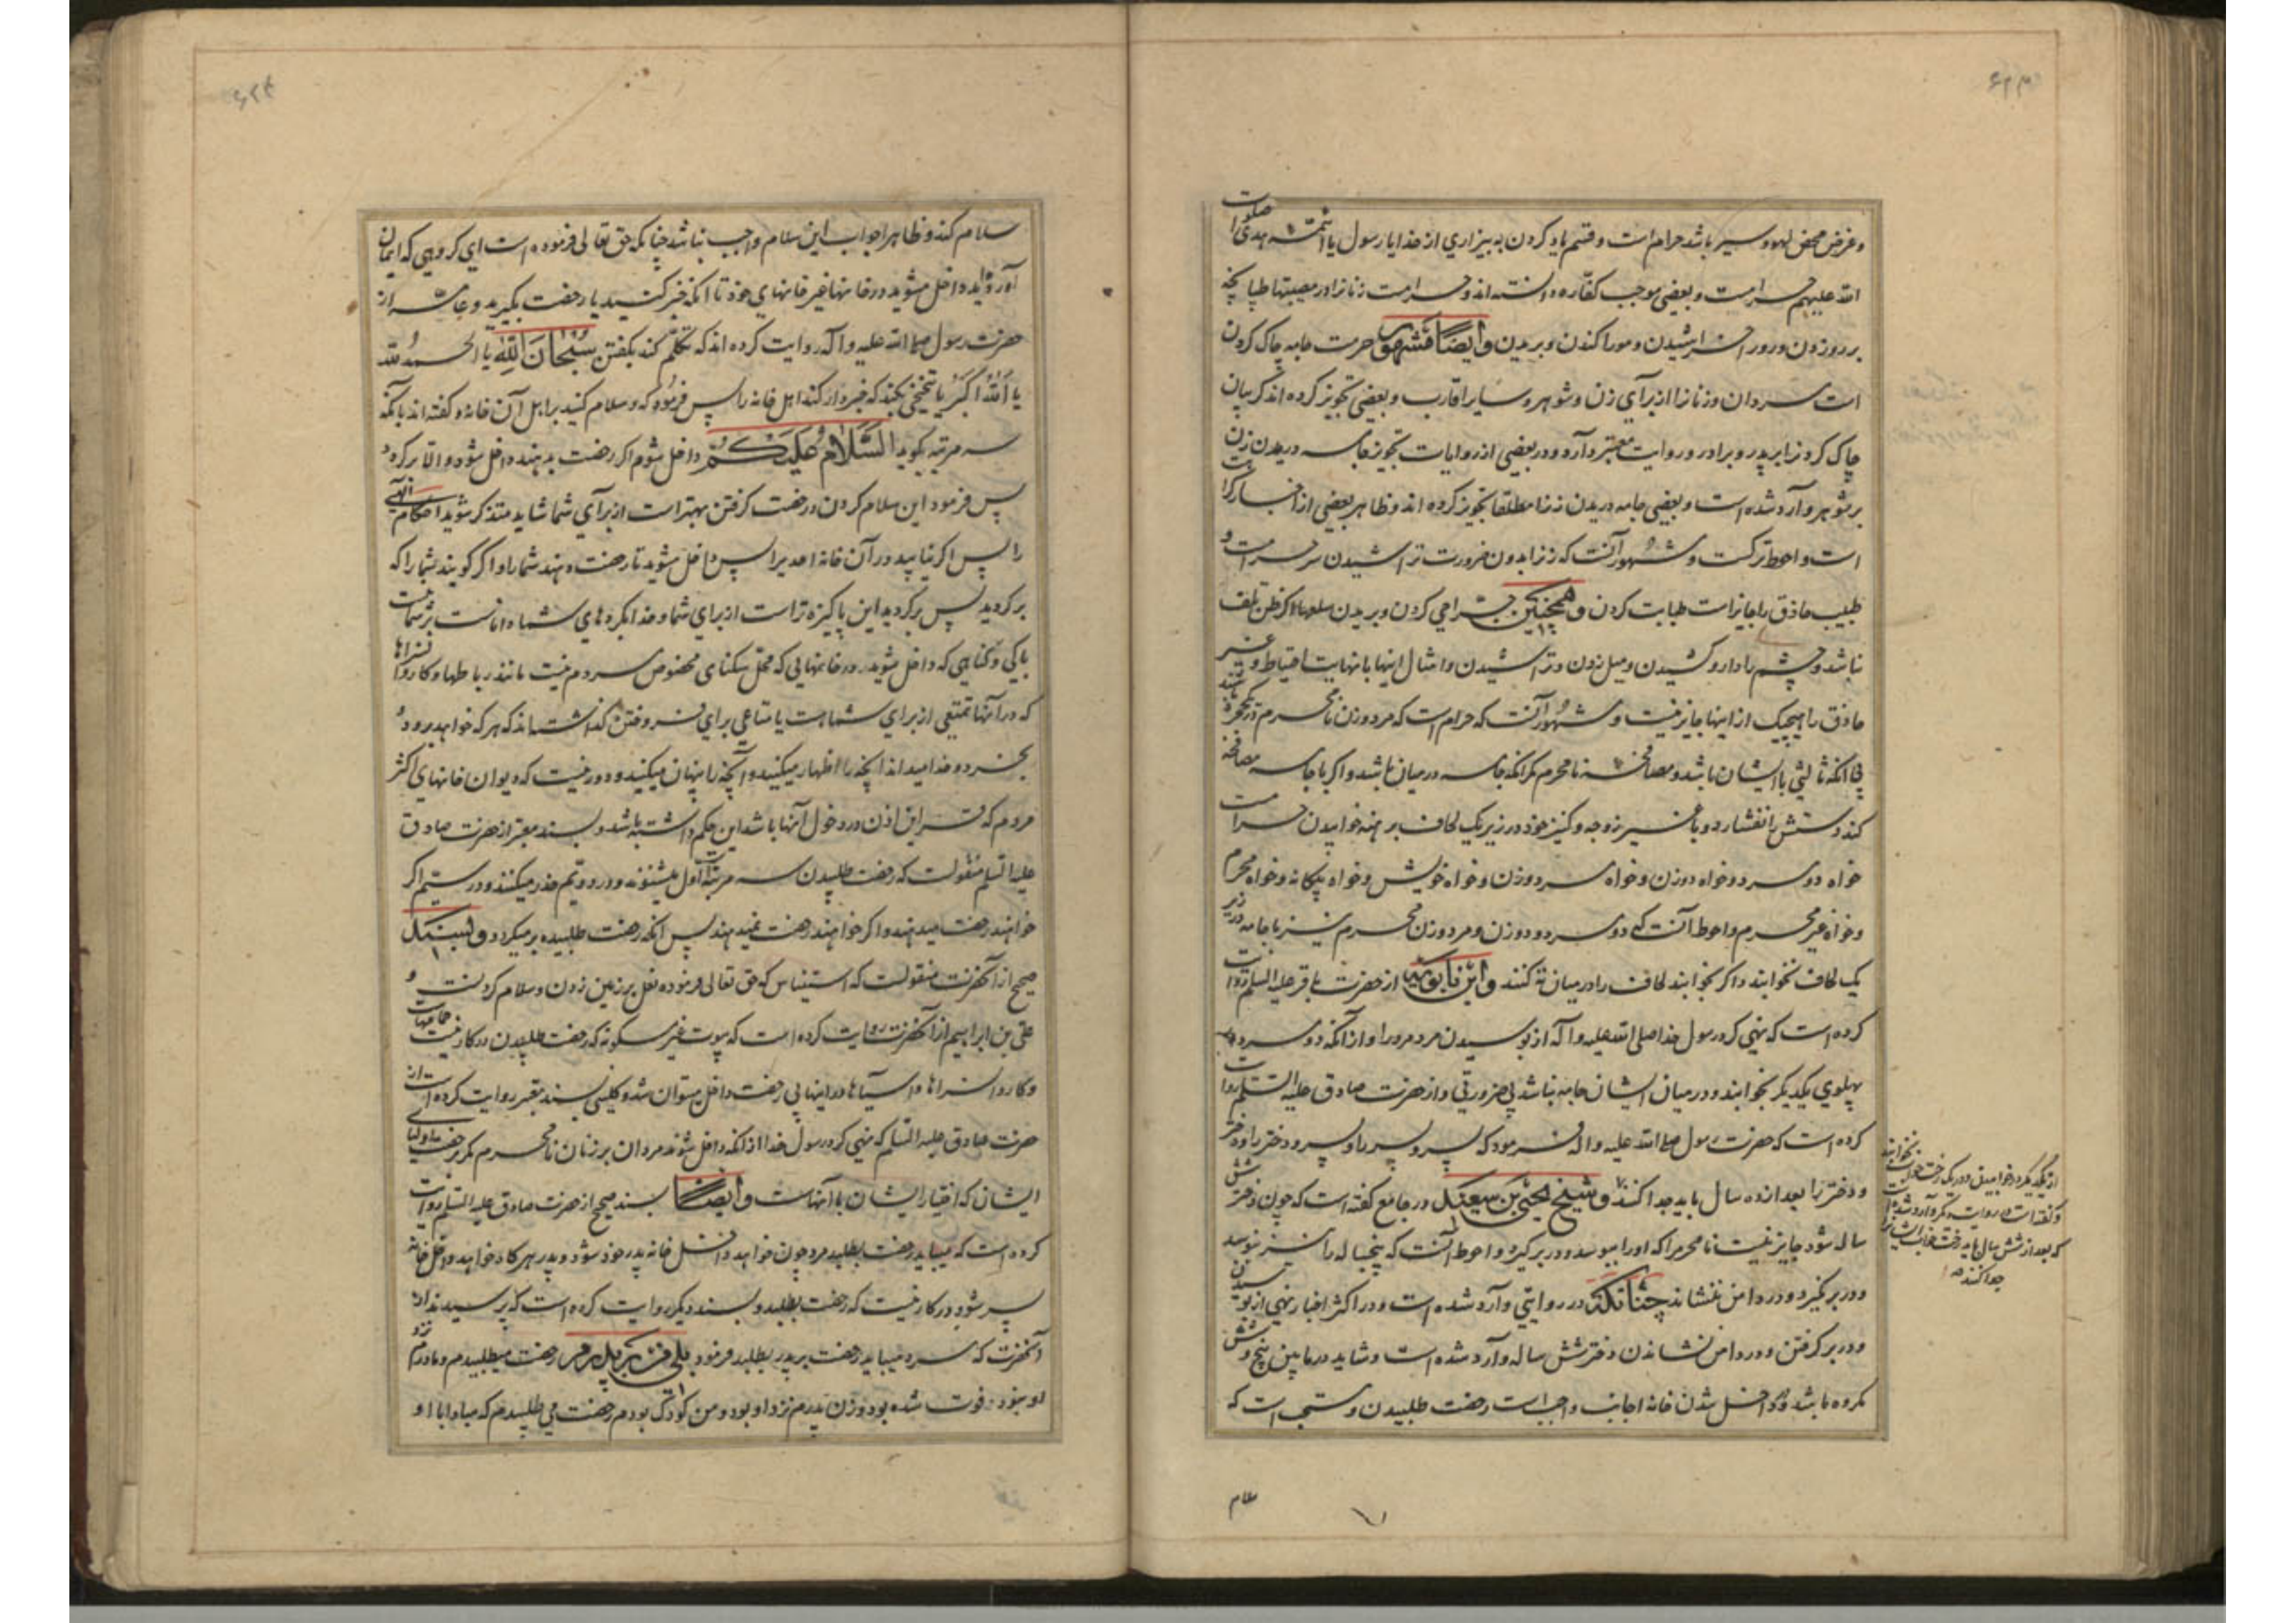 وغرض محض لهو و سیر باشد حرام است و قسم یاد کردن به بیزاري از خدا یا رسول یا ائمّهٔ هدی صلوات
الله علیهم حرامست و بعضی موجب کفّاره دانسته اند و حرامست زنانرا در مصیبتها طپانچه
بر رو زدن و رو خراشیدن و مو را کندن و بریدن وایضًا مشهور حرمت جامه چاک کردن
است مردان و زنانرا از برآي زن و شوهر و سایر اقارب و بعضی تجویز کرده اند گریبان
چاک کردنرا بر پدر و برادر و روایت معتبر وارد و در بعضی از روایات تجویز جامه دریدن زن
بر شوهر وارد شده است و بعضی جامه دریدن زنرا مطلقا تجویز کرده اند و ظاهر بعضی از اخبار کراهت
است و احوط ترکست و مشهور آنست که زنرا بدون ضرورت تراشیدن سر حرامست و
طبیب حاذق را جایز است طبابت کردن و همچنین جراحي کردن و بریدن سلعها اگر ظن تلف
نباشد و چشم را دارو کشیدن و میل زدن و تراشیدن و امثال اینها با نهایت احتیاط و غیر
حاذق را هیچیک از اینها جایز نیست و مشهور آنست که حرام است که مرد و زن نامحرم در یکحجره باشند
بی آنکه ثالثی با ایشان باشد و مصافحهٔ نامحرم مگر آنکه جامه در میان باشد و اگر با جامه مصافحه
کند دستش را نفشارد و با غیر زوجه و کنیز خود در زیر یک لحاف برهنه خوابیدن حرامست
خواه دو مرد و خواه دو زن و خواه مرد و زن و خواه خویش و خواه بیگانه و خواه محرم
و خواه غیر محرم و احوط آنست که دو مرد و دو زن و مرد و زن محرم نیز با جامه در زیر
یک لحاف نخوابند و اگر بخوابند لحاف را در میان ته کنند وابن بابویه از حضرت باقر علیه السلم روایت
کرده است که نهی کرد رسول خدا صلی الله علیه و آله از بوسیدن مرد مرد را و از آنکه دو مرد
پهلوي یکدیگر بخوابند و در میان ایشان جامه نباشد بی ضرورتی و از حضرت صادق علیه السّلم روایت
کرده است که حضرت رسول صلی الله علیه و اله فرمود که پسر و پسر را و پسر و دختر را و دختر
و دختر را بعد از ده سال باید جدا کنند و شیخ یحیی بن سعید در جامع گفته است که چون دختر شش
ساله شود جایز نیست نامحرم را که او را ببوسد و در بر گیرد و احوط آنست که پنجساله را نیز نبوسد
و در بر نگیرد و در دامن ننشاند چنانکه در روایتی وارد شده است و در اکثر اخبار نهی از بوسیدن
و در بر گرفتن و در دامن نشاندن دختر شش ساله وارد شده است و شاید در مابین پنج و شش
مکروه باشد و در داخل شدن خانه اجانب واجب است رخصت طلبیدن و مستحب است که
از یکدیگر در خوابیدن و در یک رخت خواب نخوابند
و گفته است در روایت دیگر وارد شده است
که بعد از شش سال باید رخت خواب ایشانرا
جدا کنند
سلام
سلام کند و ظاهرا جواب این سلام واجب نباشد چنانکه حق تعالی فرموده است اي گروهی که ایمان
آورده‌اید داخل مشوید در خانها غیر خانهاي خود تا آنکه خبر کنید یا رخصت بگیرید و عامّه از
حضرت رسول صلی الله علیه و اله روایت کرده اند که تکلّم کند بگفتن سُبْحَانَ اللّٰهِ یا الحمدُ لله
یا اَللّٰهُ اَکبَرُ یا تنحنحی بکند که خبردار کند اهل خانه را پس فرمود که و سلام کنید بر اهل آن خانه و گفته اند بآنکه
سه مرتبه بگوید السَّلَامُ عَلَیْکُمْ داخل شوم اگر رخصت بدهند داخل شود و الا برگردد
پس فرمود این سلام کردن و رخصت گرفتن بهتر است از برآي شما شاید متذکر شوید احکام الهی
را پس اگر نیابید در آن خانه احدیرا پس داخل مشوید تا رخصت دهند شما را و اگر گویند شما را که
برگردید پس برگردید این پاکیزه تر است از براي شما و خدا بکردهاي شما داناست بر شما نیست
باکی و گناهی که داخل شوید در خانهایی که محل سکناي مخصوص مردم نیست مانند رباطها و کاروانسراها
که در آنها تمتعی از براي شما هست یا متاعی براي فروختن گذاشته اند که هر که خواهد برود
بخرد و خدا میداند آنچه را اظهار میکنید و آنچه را پنهان میکنید و دور نیست که دیوان خانهاي اکثر
مردم که قراین اذن در دخول آنها باشد این حکم داشته باشد و بسند معتبر از حضرت صادق
علیه السّلم منقولست که رخصت طلبیدن سه مرتبه است اول میشنوند و در دویّم حذر میکنند و در سیّم اگر
خواهند رخصت میدهند و اگر خواهند رخصت نمیدهند پس آنکه رخصت طلبیده برمیگردد و بسند
صحیح از آنحضرت منقولست که استیناس که حق تعالی فرموده نعل بر زمین زدن و سلام کردنست و
علی بن ابراهیم از آنحضرت روایت کرده است که بیوت غیر مسکونه که رخصت طلبیدن در کار نیست حمامهاست
و کاروانسراها و آسیاها در اینها بی رخصت داخل میتوان شد و کلینی بسند معتبر روایت کرده است از
حضرت صادق علیه السّلم که نهی کرد رسول خدا از آنکه داخل شوند مردان بر زنان نامحرم مگر برخصت اولیاي
ایشان که اختیار ایشان با آنهاست وَایضًا بسند صحیح از حضرت صادق علیه السّلم روایت
کرده است که میباید رخصت بطلبد مرد چون خواهد داخل خانه پدر خود شود و پدر هرگاه خواهد داخل خانه
پسر شود در کار نیست که رخصت بطلبد و بسند دیگر روایت کرده است که پرسیدند از
آنحضرت که مرد میباید رخصت بر پدر بطلبد فرمود بلی من بر پدرم رخصت میطلبیدم و مادرم نزد
او نبود فوت شده بود و زن پدرم نزد او بود و من کودک بودم رخصت می طلبیدم که مبادا با او